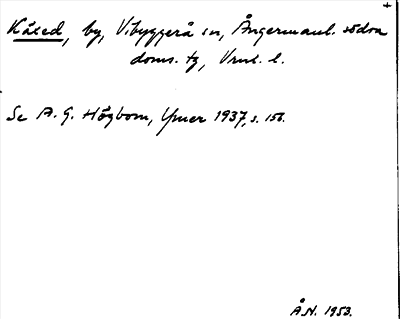 Kåsed, by, Vibyggerå sn, Ångermanl. södra
doms. tg, Vrnl. l.
Se A. G. Högbom, Ymer 1937, s. 156.
Å.N. 1953.